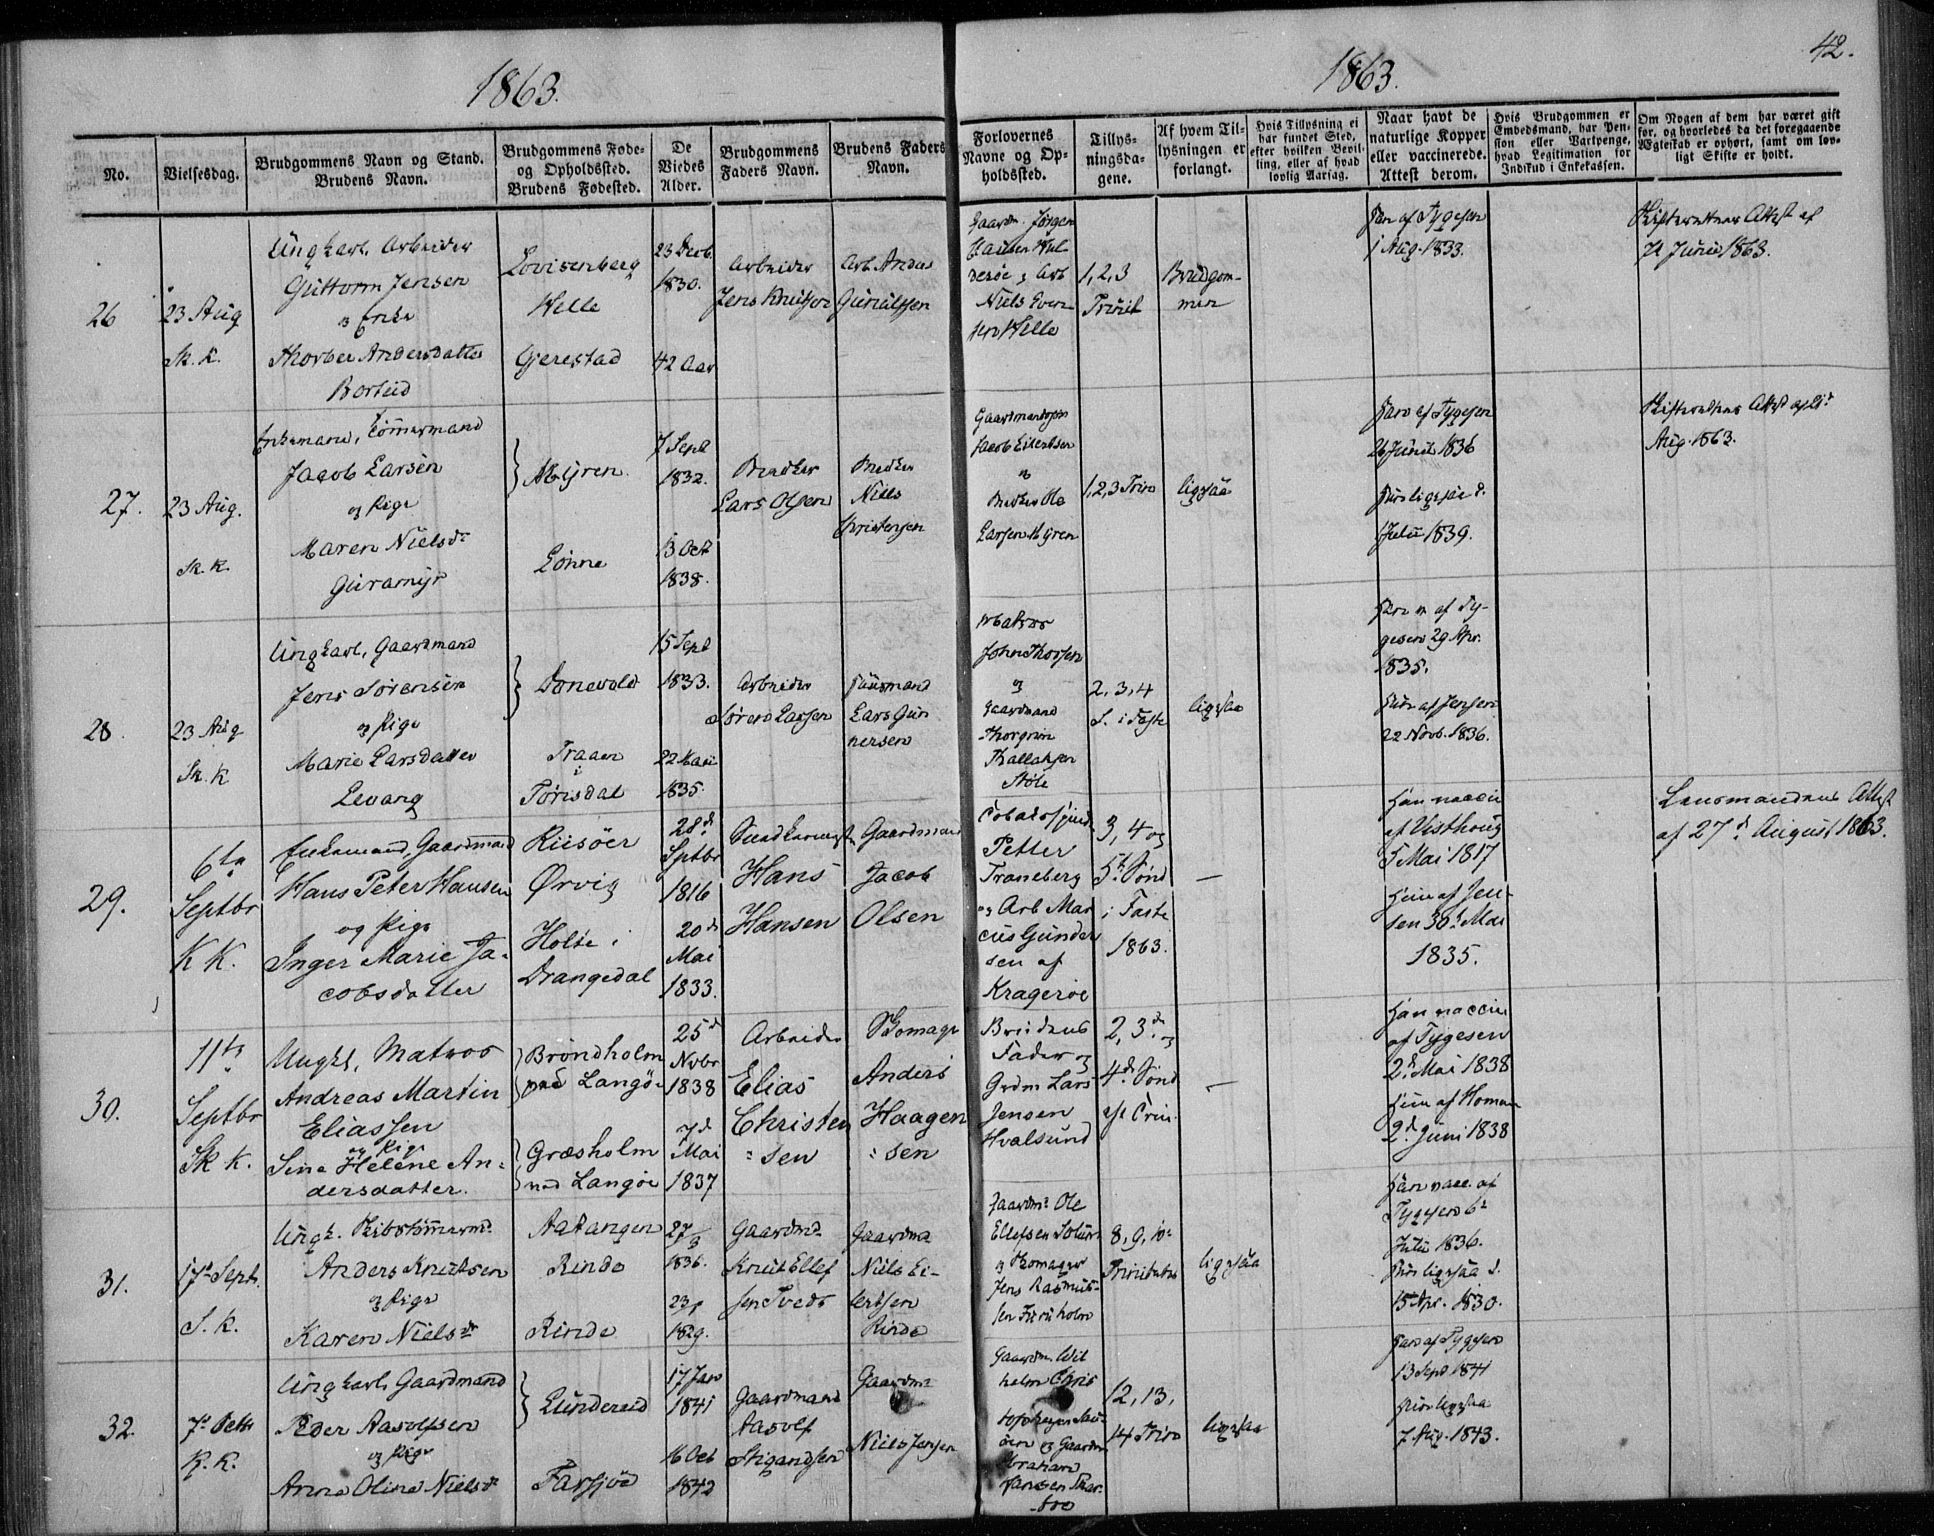 1863.
1863.
42.
No.
Vielsesdag.
Brudgommens Navn og Stand.
Brudens Navn.
Brudgommens Føde-
og Opholdssted.
Brudens Fødested.
De
Viedes
Alder.
Brudgommens
Faders Navn.
Brudens Faders
Navn.
Forlovernes
Navne og Op-
holdssted.
Tillys-
ningsda-
gene.
Af hvem Til-
lysningen er
forlangt.
Hvis Tillysning ei
har fundet Sted,
efter hvilken Bevil-
ling, eller af hvad
lovlig Aarsag.
Naar havt de
naturlige Kopper
eller vaccinerede.
Attest derom.
Hvis Brudgommen er
Embedsmand, har Pen-
sion eller Vartpenge,
hvad Legitimation for
Indskud i Enkekassen.
Om Nogen af dem har været gift
før, og hvorledes da det foregaaende
Ægteskab er ophørt, samt om lov-
ligt Skifte er holdt.
26
23 Aug
Sk. K.
Ungkarl, Arbeider
Guttorm Jensen
og Enke
Thorber Andersdatter
Borteid
Lovisenberg
Helle
Gjerestad
23 Decb.
1830.
42 Aar
Arbeider
Jens Knutsen
Arb. Anders
Gunulfsen
Gaardm. Jørgen
Niels Even-
sen Helle
1, 2, 3
Trinit
Brudgom-
men
Han af Tygesen
1 Aug. 1833.
Skifterettens Attest af
Juni 1863.
27.
23 Aug.
Sk. K.
Enkemand, Tømmermand
Jacob Larsen
og Pige
Maren Nielsdr
Guramyr
Myren
Lønne
7 Sept
1832.
13 Oct
1838.
Lars Olsen
Niels
Christensen
Jacob Eilertsen
og
Larsen Myren
1, 2, 3 Trin
ligesaa
Han af Tygesen
26 Juni 1836
Hun ligesaa d.
Juli 1839.
Skifterettens Attest af
Aug. 1863.
28.
23 Aug
Sk. K
Ungkarl, Gaardmand
Jens Sørensen
og Pige
Marie Larsdatter
Levang
Donevold
Traaen
i
Tørisdal
15 Sept
1833.
22 Mai
1835.
Arbeider
Søren Larsen
Huusmand
Lars Gun
nersen
John Thorsen
og
Gaardmand
Thorgrim
Tallaksen
Støle
2, 3, 4
S. i Faste
ligesaa
Han af Ty-
gesen 29 Apr.
1835.
Hun af Jensen
22 Novb. 1836.
29.
6te
Septbr
K K.
Enkemand, Gaardmand
Hans Peter Hansen
og Pige
Inger Marie Ja-
cobsdatter
Riisøer
Ørvig
Holte i
Drangedal
28d
Septbr
1816
20d
Mai
1833.
Hans
Hansen
Gaardmand
Jacob
Olsen
Petter
Traneberg
og Arb Mar
cus Gunder
sen af
Kragerøe
3, 4 og
5te Sønd
i Faste
1863.
—
Han vaccin
af Visthoug
5 Mai 1817
Hun af Jen-
sen 30d Mai
1835.
Lensmandens Attest
af 27d August 1863.
30.
11te
Septbr
Sk K.
Ungk., Matros
Andreas Martin
Eliassen
og Pige
Sine Helene An-
dersdatter.
Brøndholm
ved Langøe
Græsholm
ved Langøe
25d
Novbr
1838
7d
Mai
1837
Arbeider
Elias
Christen
sen
Skomager
Anders
Haagen
sen
Brudens
Fader og
Grdm Lars
Jensen
Hvalsund
2, 3d og
4d Sønd
e/ Trin.
—
Han vaccin
af Tygesen
2d Mai 1838
Hun af Homan
2d Juni 1838
31.
17d Sept.
S. K.
Ungk. Skibstømmermd.
Anders Knutsen
og Pige
Karen Nielsdr
Aatangen
Rinde
Rinde
27/3
1836.
1829.
Gaardmd.
Knut Ellef
sen Tveds
Gaardmd
Niels Ei-
lertsen
Rinde
Gaardmd. Ole
Ellefsen
og Skomager
Jens Rasmus-
sen Furuholm
8, 9, 10de
Trinitatis
ligesaa
Han vacc. af
Tygesen 6te
Juli 1836.
Hun ligesaa d.
15 Apr. 1830.
32.
7d Octb
K. K.
Ungkarl Gaardmand
Peder Aasolfsen
og Pige
Anne Oline Nielsdr
Lundereid
Farsjøe
17 Jan
1841
16 Oct
1842
Gaardmand
Aasolf
Stigandsen
Gaardmd.
Niels Jensen
Gaardm. Wil
helm Chris
og Gaardm
Abraham
Hansen
12, 13,
14 Trin
ligesaa
Han af Tygesen
13 Sept 1841
Hun ligesaa
7 Aug. 1843.